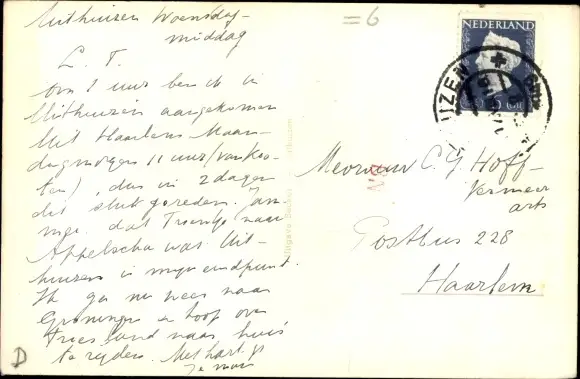 Uithuizen Woensdag-
middag
L. T.
Om 1 uur ben ik in
Uithuizen aangekomen
Uit Haarlem Maan-
dagmorgen 11 uur
, dus in 2 dagen
dit stuk gereden. Jam-
mer dat Trientje naar
Appelscha was. Uit-
huizen is mijn eindpunt.
Ik ga nu weer naar
Groningen en hoop over
Friesland naar huis
te rijden. Met hart. gr
=6
NEDERLAND
Mevrouw C. J. Hoff-
Vermeer
arts
Postbus 228
Haarlem
Uitgave
D